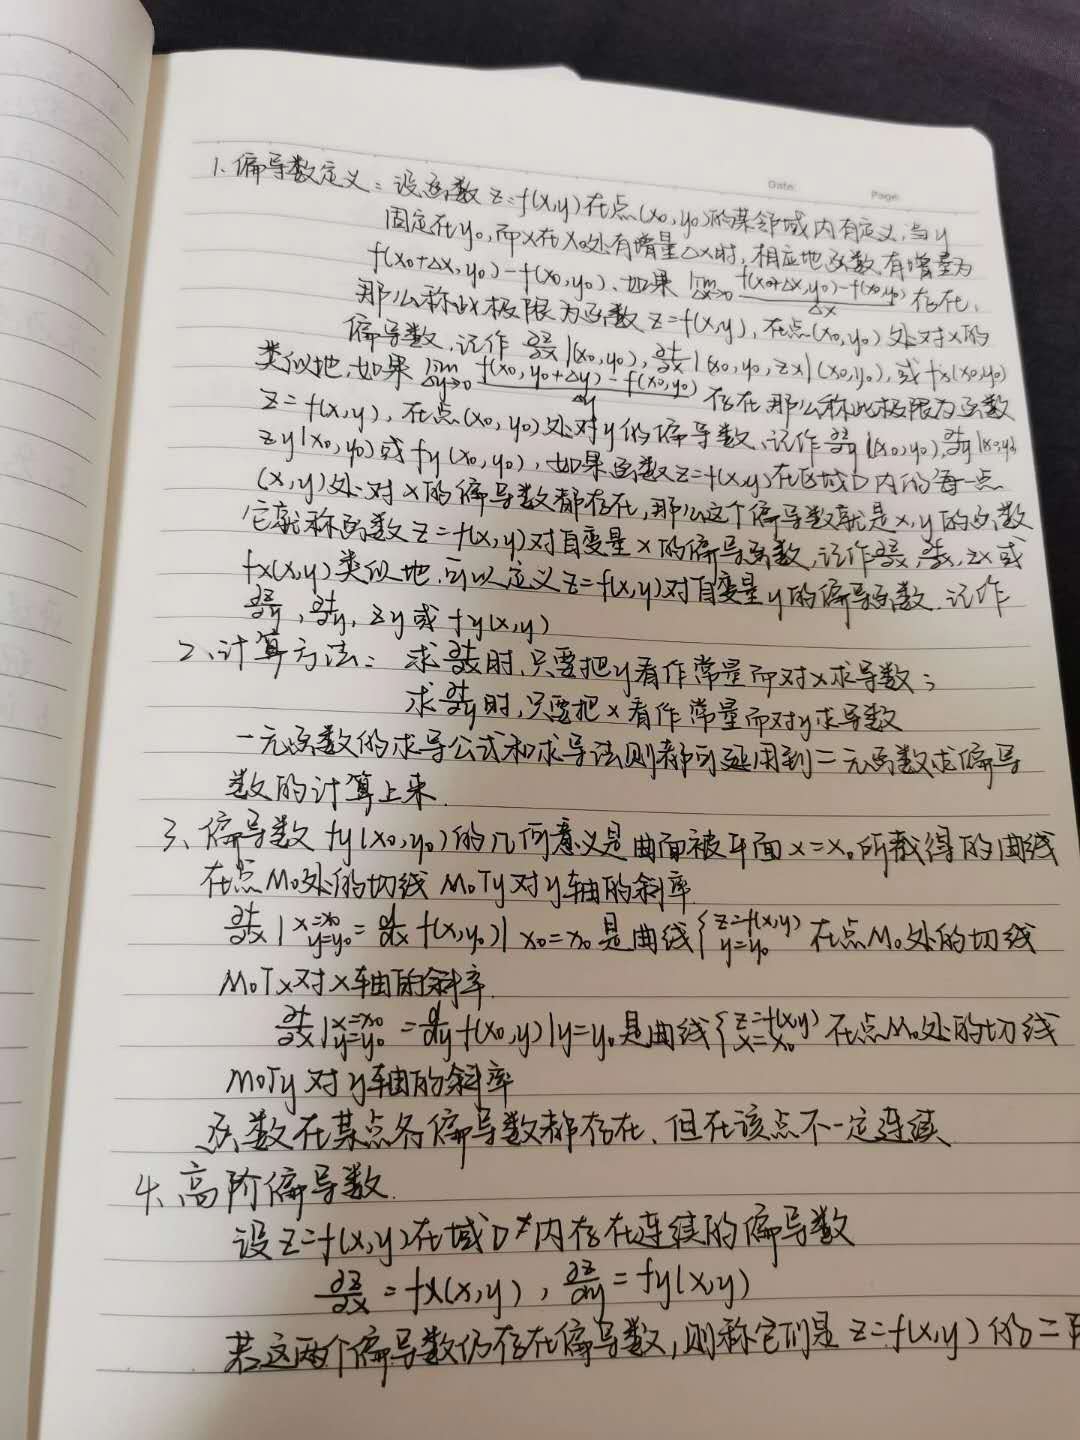 Date: Page:
1、偏导数定义：设函数 z=f(x,y)在点(x₀,y₀)的某邻域内有定义,当y
固定在y₀,而x在x₀处有增量△x时,相应地函数有增量为
f(x₀+△x,y₀)-f(x₀,y₀).如果 lim△x→0 f(x₀+△x,y₀)-f(x₀,y₀)/△x 存在,
那么称此极限为函数 z=f(x,y),在点(x₀,y₀)处对x的
偏导数,记作 ∂z/∂x|(x₀,y₀),∂f/∂x|(x₀,y₀,zx|(x₀,y₀),或fx(x₀,y₀)
类似地,如果 lim△y→0 f(x₀,y₀+△y)-f(x₀,y₀)/△y 存在那么称此极限为函数
z=f(x,y),在点(x₀,y₀)处对y的偏导数,记作 ∂z/∂y|(x₀,y₀),∂f/∂y|(x₀,y₀)
zy|x₀,y₀)或fy(x₀,y₀),如果函数z=f(x,y)在区域D内的每一点
(x,y)处对x的偏导数都存在,那么这个偏导数就是x,y的函数
它就称函数z=f(x,y)对自变量x的偏导函数,记作∂z/∂x,∂f/∂x,zx或
fx(x,y)类似地,可以定义z=f(x,y)对自变量y的偏导函数,记作
∂z/∂y,∂f/∂y,zy或fy(x,y)
2、计算方法：求∂f/∂x时,只要把y看作常量而对x求导数；
求∂f/∂y时,只要把x看作常量而对y求导数
一元函数的求导公式和求导法则都可延用到二元函数求偏导
数的计算上来.
3、偏导数fy(x₀,y₀)的几何意义是曲面被平面x=x₀所截得的曲线
在点M₀处的切线M₀Ty对y轴的斜率
∂f/∂x|x=x₀ y=y₀=d/dx f(x,y₀)|x₀=x₀是曲线{z=f(x,y) y=y₀ 在点M₀处的切线
M₀Tx对x轴的斜率.
∂f/∂x|x=x₀ y=y₀=d/dy f(x₀,y)|y=y₀是曲线{z=f(x,y) x=x₀ 在点M₀处的切线
M₀Ty对y轴的斜率
函数在某点各偏导数都存在,但在该点不一定连续
4、高阶偏导数.
设z=f(x,y)在域D内存在连续的偏导数
∂z/∂x=fx(x,y),∂z/∂y=fy(x,y)
若这两个偏导数仍存在偏导数,则称它们是z=f(x,y)的二